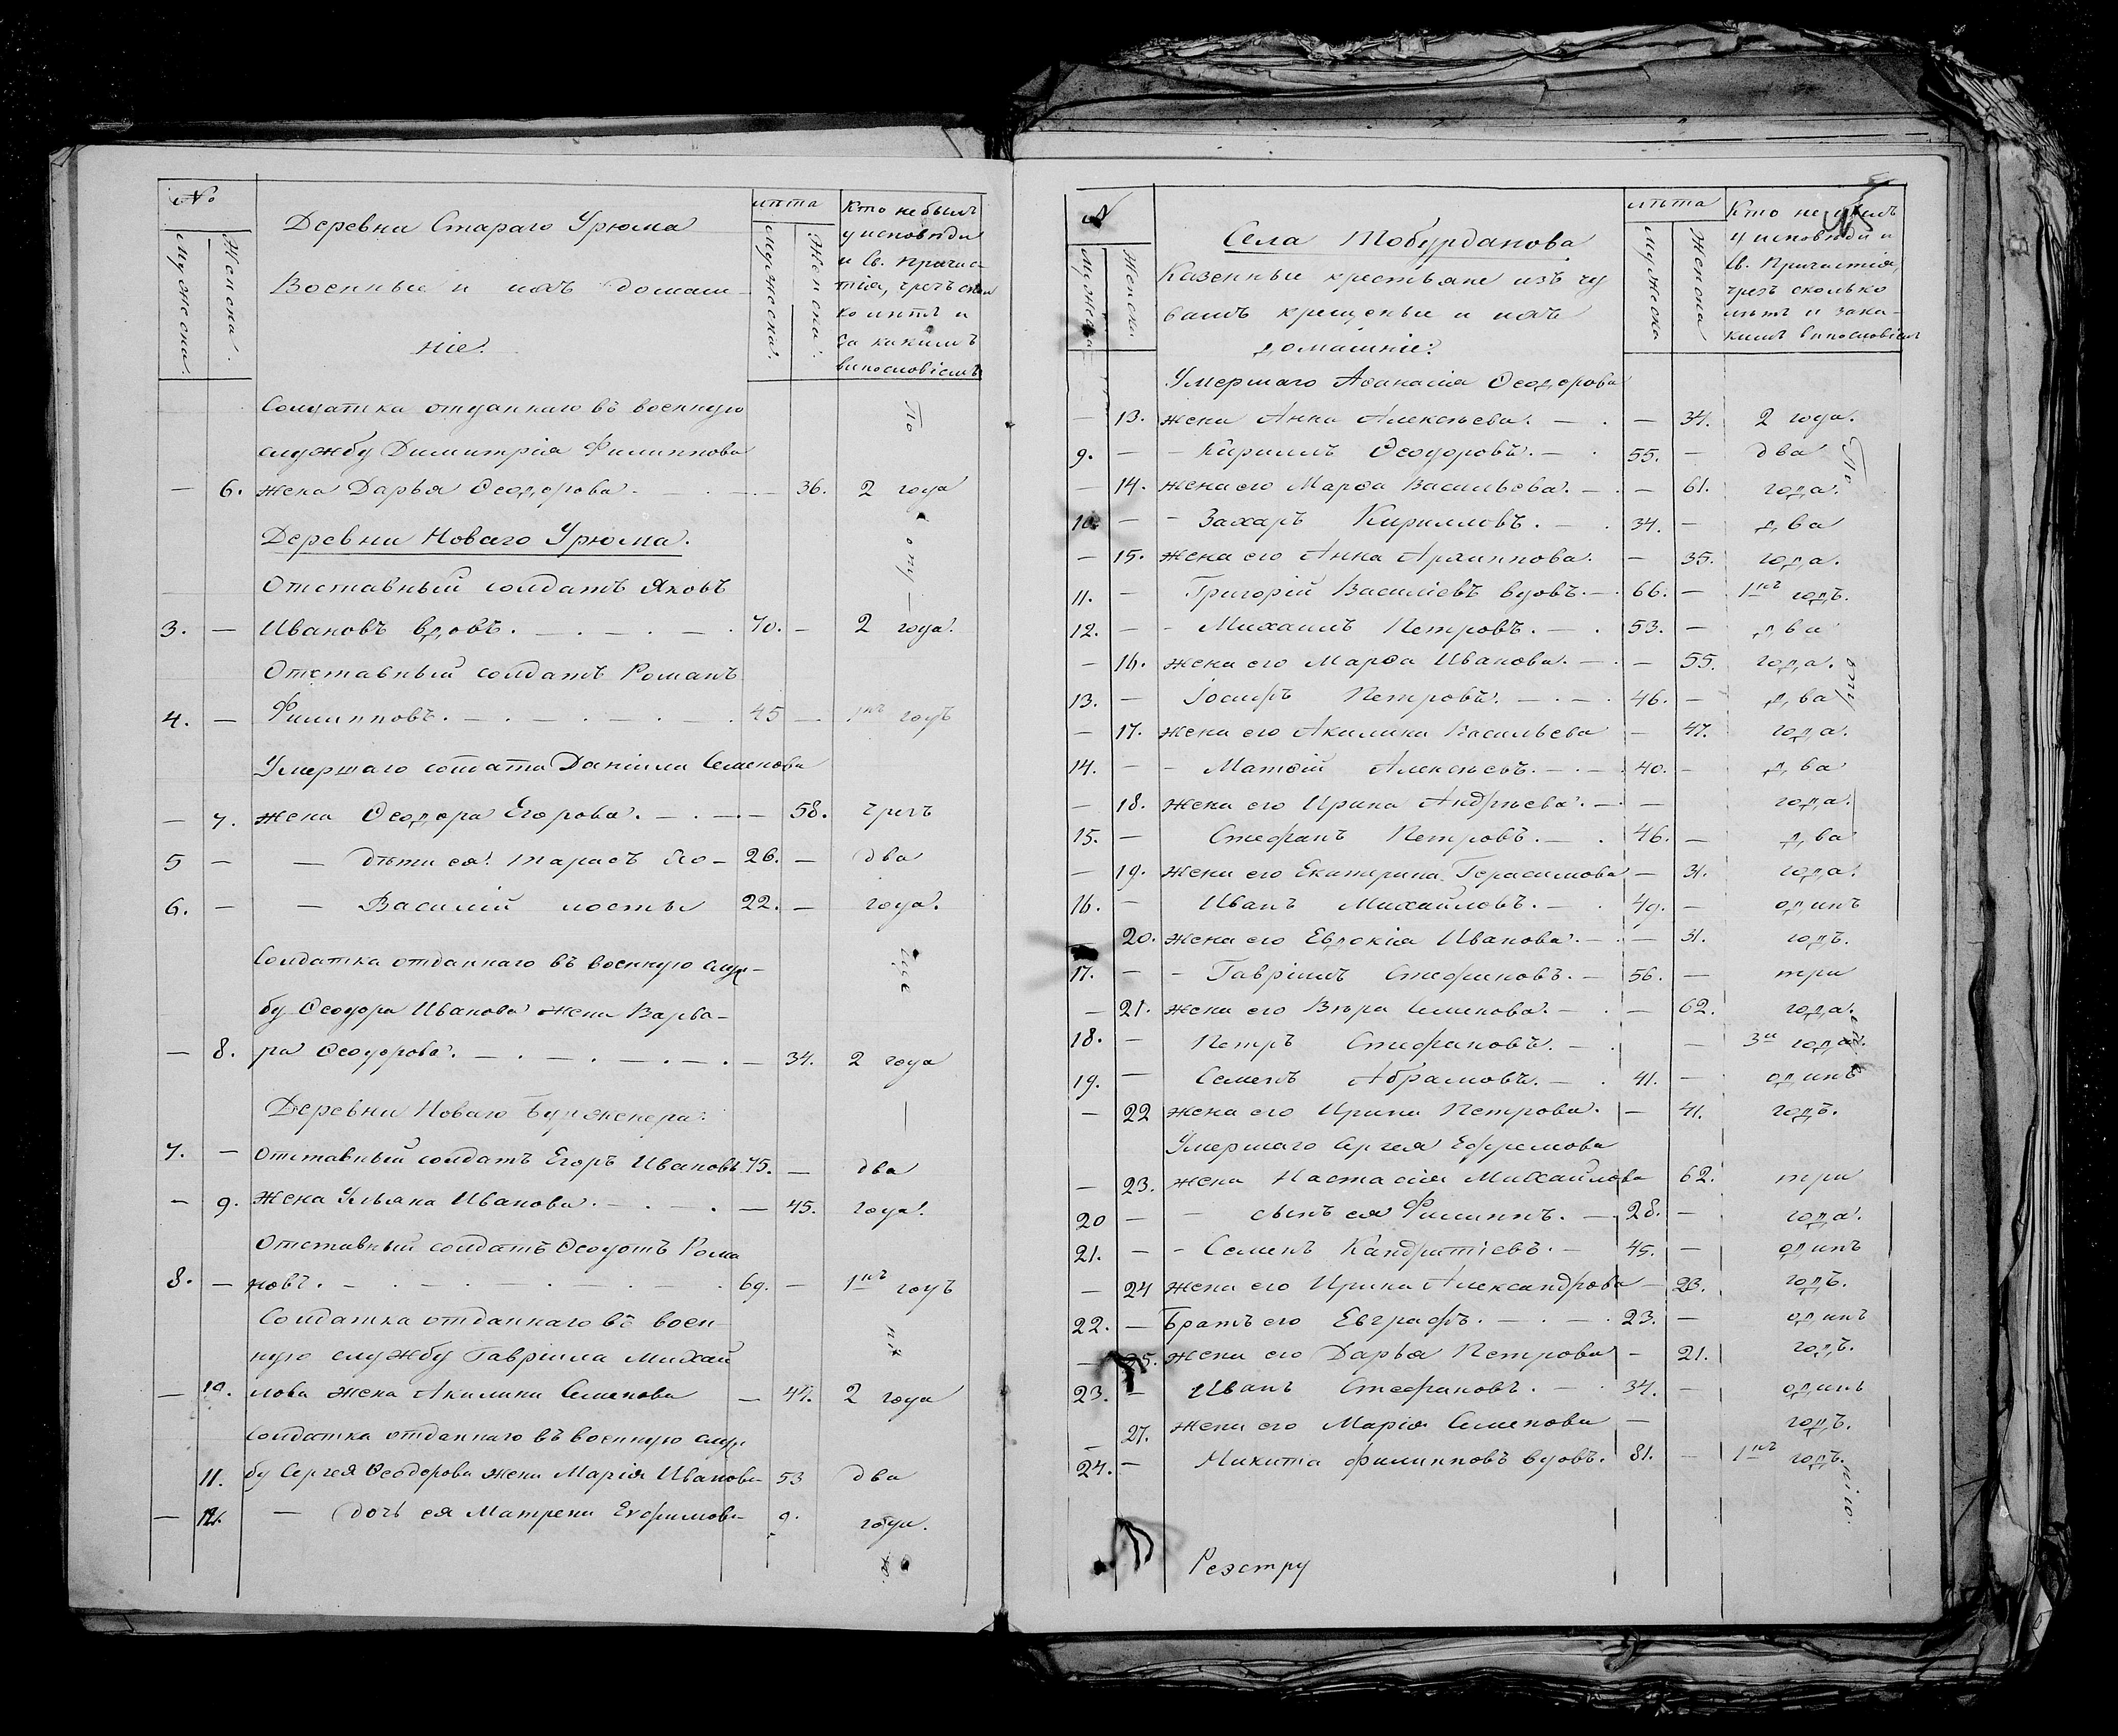 №
Мужеска.
Женска.
Деревни Стараго Урюма
Военные и ихъ домаш-
ніе.
лѣта
Мужеска.
Женска.
Кто не былъ
у исповѣди
и Св. Причас-
тія, чрезъ сколь
ко лѣтъ и
за какимъ
винословіемъ
Солдатка отданнаго въ военную
службу Димитрія Филиппова
— 6. жена Дарья Ѳеодорова. — 36. 2 года
Деревни Новаго Урюма.
Отставный солдатъ Яковъ
3. — Ивановъ вдовъ. 70. — 2 года.
Отставный солдатъ Романъ
4. — Филипповъ. 45 — 1нъ годъ
Умершаго солдата Даніила Семенова
— 7. жена Ѳеодора Егорова. — 58. чрезъ
5 — — дѣти ея: Тарасъ 26. — два
6. — — Василій 22. — года.
Солдатка отданнаго въ военную служ-
бу Ѳеодора Иванова жена Варва-
— 8. ра Ѳеодорова. — 34. 2 года
Деревни Новаго
7. — Отставный солдатъ Егоръ Ивановъ 75. — два
— 9. Жена Ульяна Иванова. — 45. года.
Отставный солдатъ Ѳеодотъ Рома
8. — новъ. 69. — 1нъ годъ
Солдатка отданнаго въ воен-
ную службу Гавріила Михай
— 10. лова жена Акилина Семенова — 47. 2 года
Солдатка отданнаго въ военную служ
11. бу Сергея Ѳеодорова жена Марія Иванова 53 два
— 12. — дочь ея Матрена Ефимова 9. года.
По
опу
ще
нію.
№
Мужеска
Женска.
Села Тобурданова
Казенные крестьяне изъ чу
вашъ крещеные и ихъ
домашніе:
лѣта
Мужеска
Женска
Кто не былъ
у исповѣди и
Св. Причастія,
чрезъ сколько
лѣтъ и за ка-
кимъ винословіемъ
Умершаго Аѳанасія Ѳеодорова
— 13. жена Анна Алексѣева. — 34. 2 года.
9. — — Кириллъ Ѳеодоровъ. 55. — два
— 14. жена его Марѳа Васильева. — 61. года.
10. — — Захаръ Кирилловъ. 34. — два
— 15. жена его Анна Архиппова. — 35. года.
11. — Григорій Василіевъ вдовъ. 66. — 1нъ годъ.
12. — — Михаилъ Петровъ. 53. — два
— 16. жена его Марѳа Иванова. — 55. года.
13. — Іосифъ Петровъ. 46. — два
— 17. жена его Акилина Васильева — 47. года.
14. — — Матѳій Алексѣевъ. 40. — два
— 18. жена его Ирина Андрѣева. — года.
15. — Стефанъ Петровъ. 46. — два
— 19. жена его Екатерина Герасимова — 31. года.
16. — Иванъ Михайловъ. 49. — одинъ
— 20. жена его Евдокія Иванова. — 31. годъ.
17. — — Гавріилъ Стефановъ. 56. — три
— 21. жена его Вѣра Семенова. — 62. года.
18. — Петръ Стефановъ. — 3и года.
19. — Семенъ Абрамовъ. 41. — одинъ
— 22 жена его Ирина Петрова. — 41. годъ.
Умершаго Сергея Ефремова
— 23. жена Настасія Михайлова 62. три
20 — — сынъ ея Филиппъ. 28. — года.
21. — — Семенъ Кандратіевъ. 45. — одинъ
— 24 жена его Ирина Александрова — 23. годъ.
22. — Братъ его Евграфъ. 23. — одинъ
— 25. жена его Дарья Петрова — 21. годъ.
23. — Иванъ Стефановъ. 34. — одинъ
— 27. жена его Марія Семенова — годъ.
24. — Микита Филипповъ вдовъ. 81. — 1нъ годъ.
По
опу
нію.
Реэстру